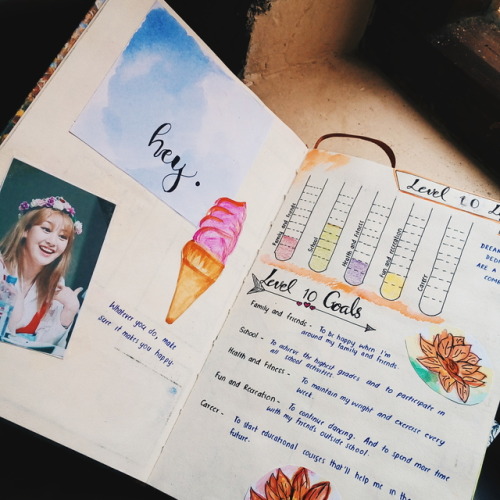 hey.
Whatever you do, make
sure it makes you happy.
Level 10
Family and friends
School
Health and Fitness
Fun and recreation
Career
Level 10 Goals
Family and friends - To be happy when I'm
around my family and friends.
School - To achieve the highest grades and to participate in
all school activities.
Health and Fitness - To maintain my weight and exercise every
week.
Fun and Recreation - To continue dancing. And to spend more time
with my friends outside school.
Career - To start educational courses that'll help me in
future.